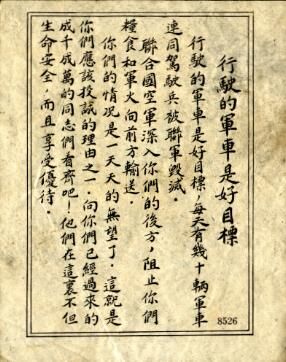 行駛的軍車是好目標
行駛的軍車是好目標，每天有幾十輛軍車
連同駕駛兵被聯軍毀滅。
聯合國空軍深入你們的後方，阻止你們
糧食和軍火向前方輸送。
你們的情况是一天天的無望了。這就是
你們應該投誠的理由之一．向你們已經過來的
成千成萬的同志們看齊吧！他們在這裏不但
生命安全，而且享受優待。
8526